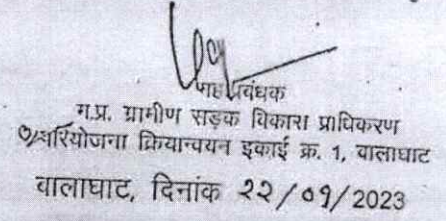 महाप्रबंधक
म.प्र. ग्रामीण सड़क विकास प्राधिकरण
परियोजना क्रियान्वयन इकाई क्र. 1, बालाघाट
बालाघाट, दिनांक २२/०१/2023